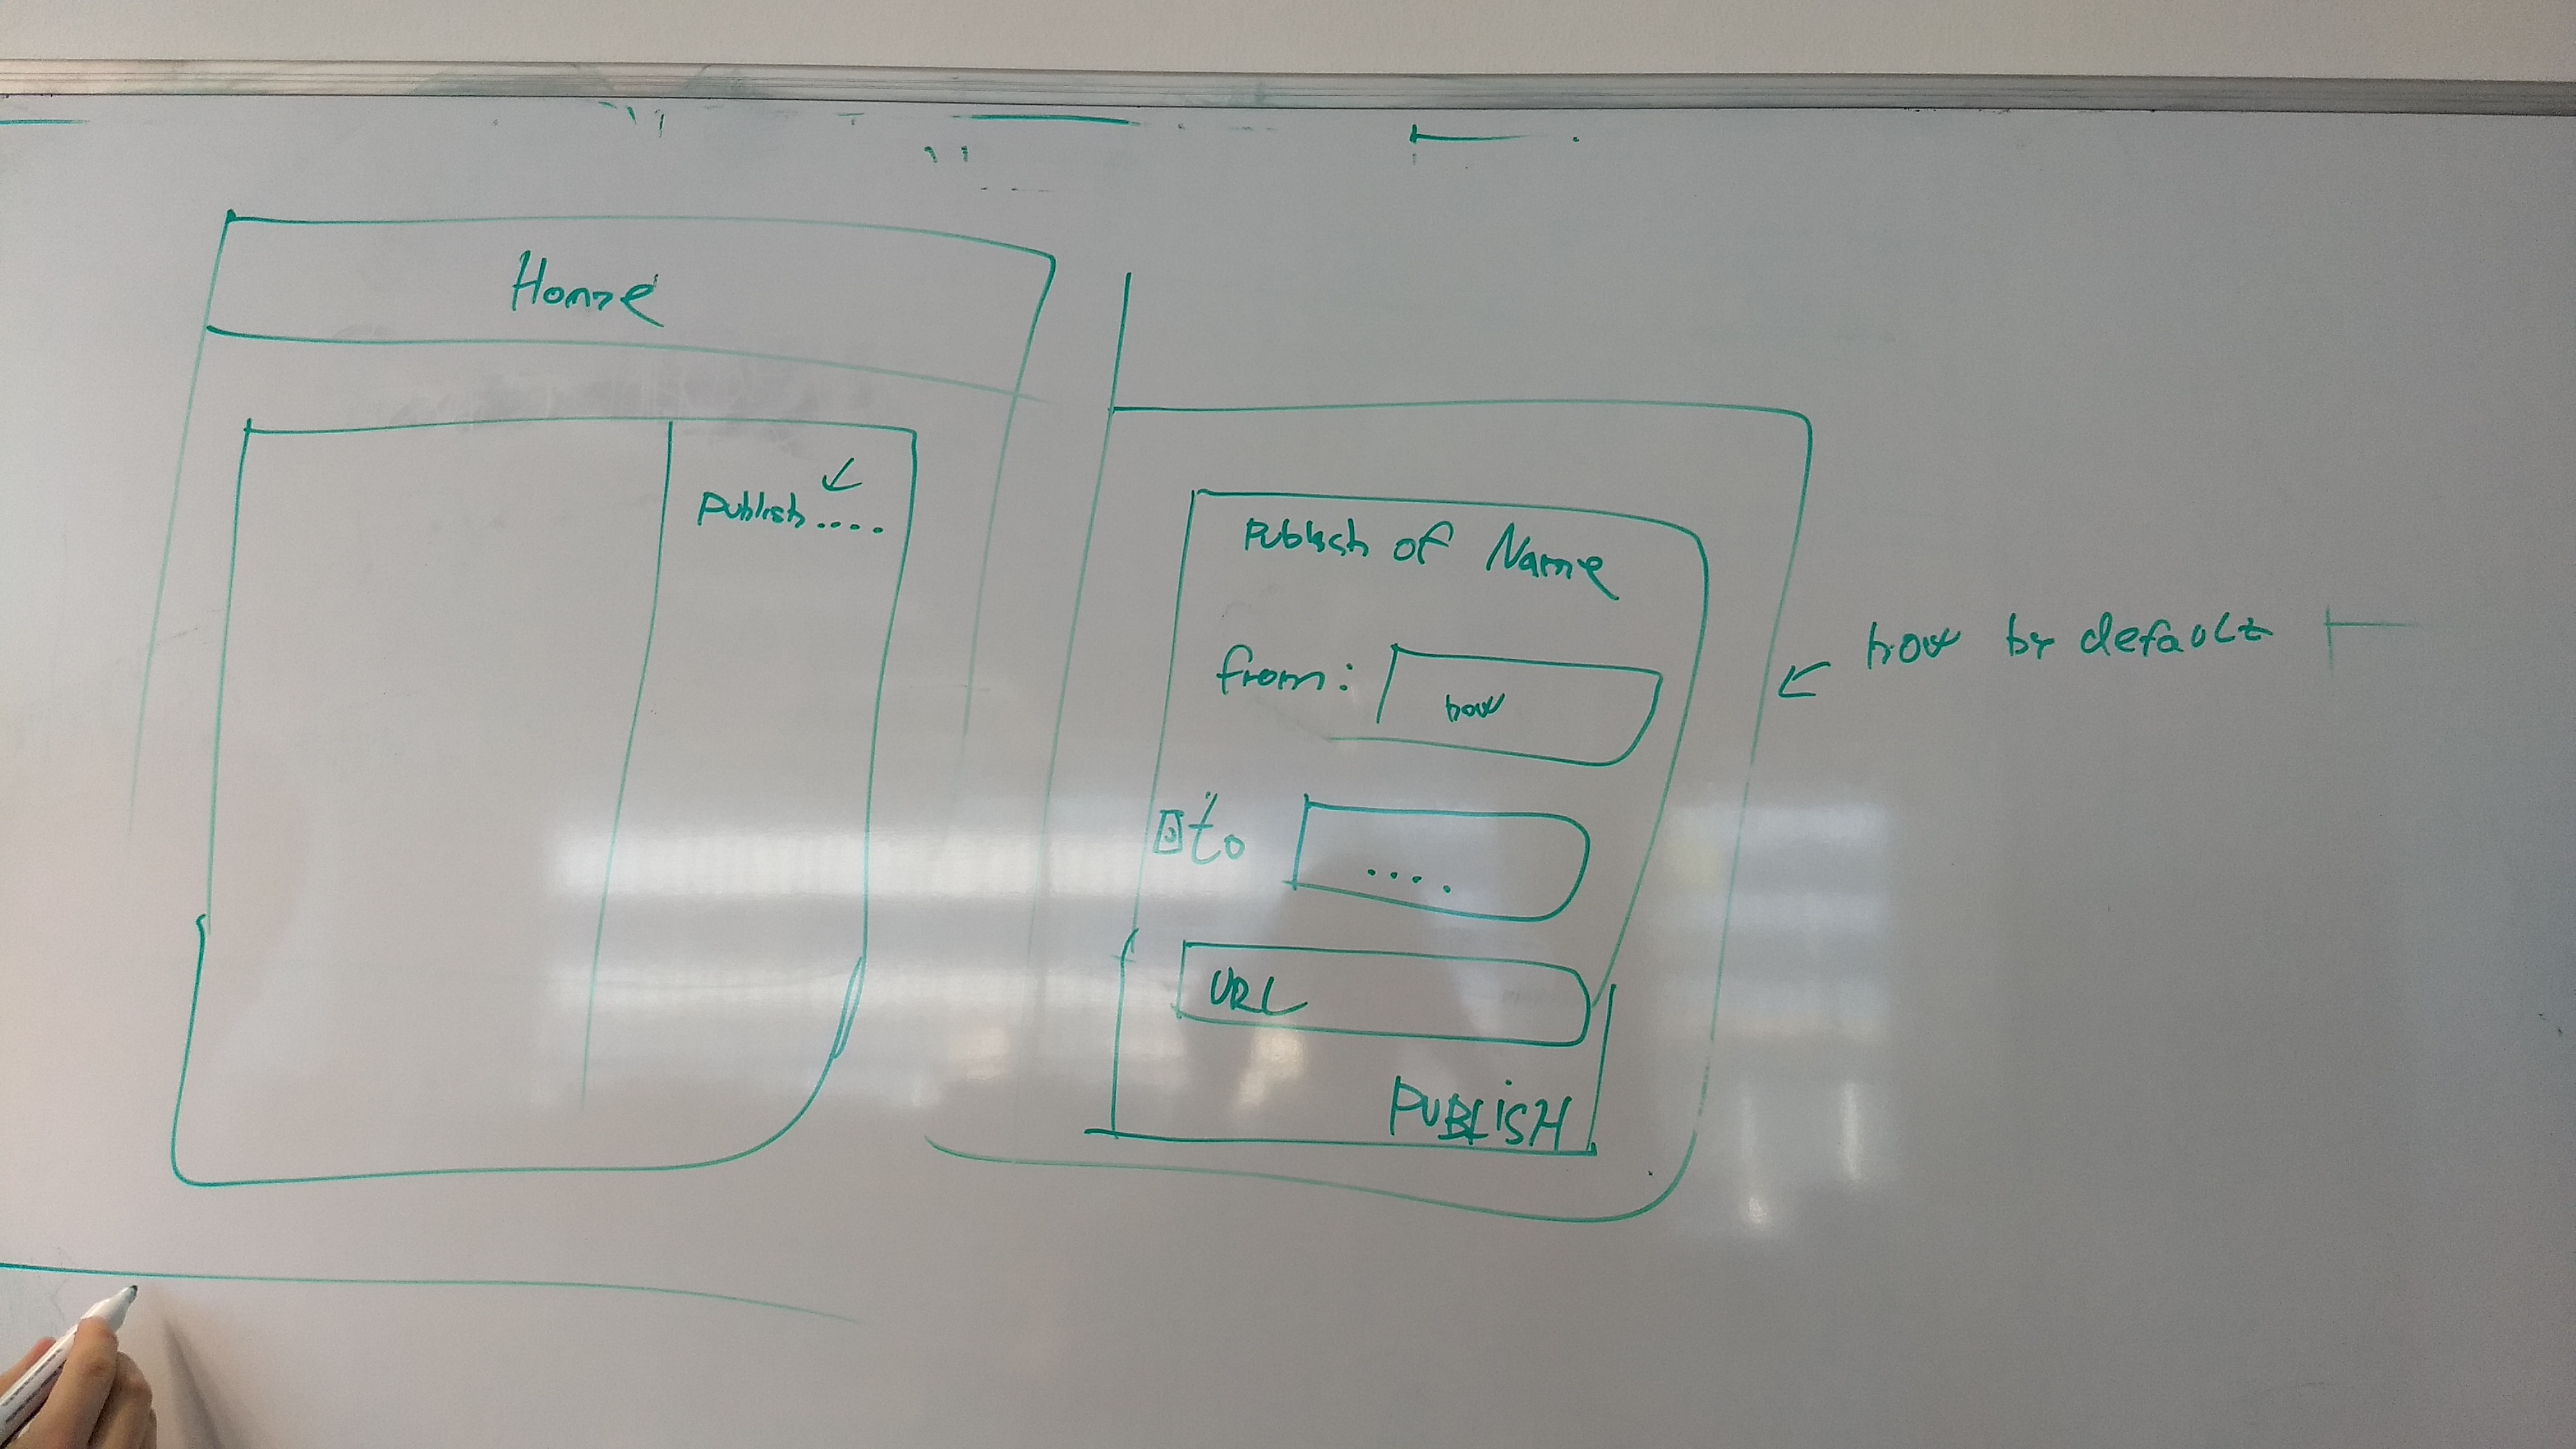 Home
Publish....
Publish of Name
from: now
to ....
URL
PUBLISH
now by default